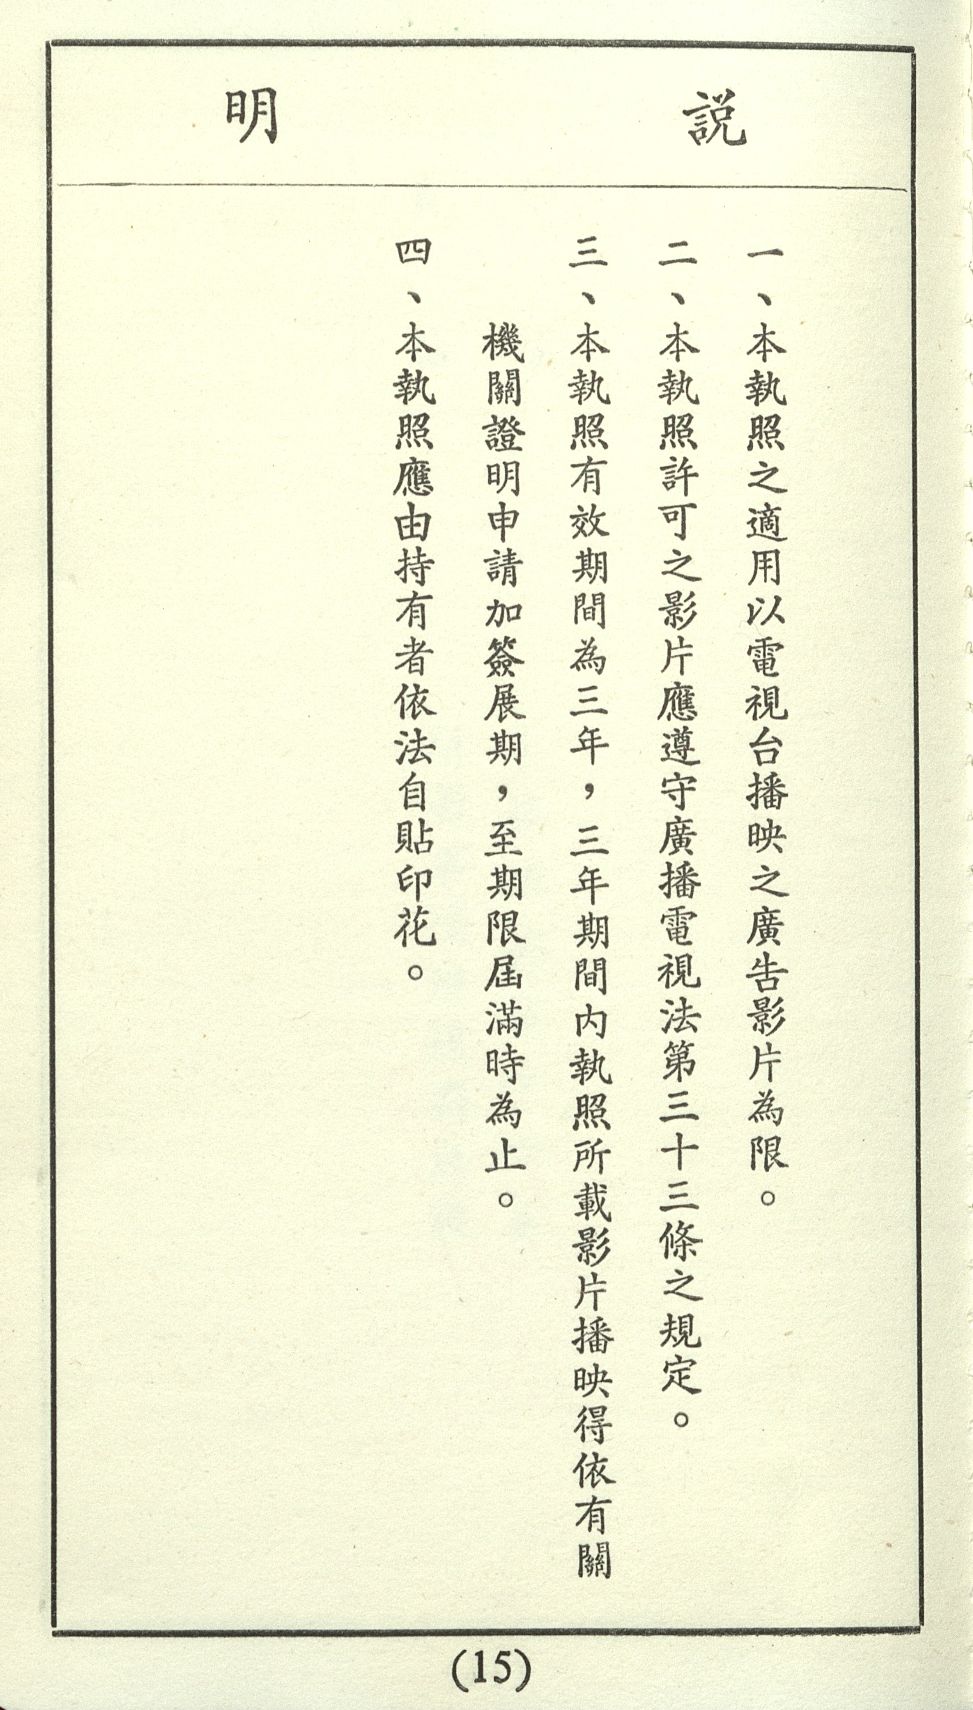 説明
一、本執照之適用以電視台播映之廣告影片為限。
二、本執照許可之影片應遵守廣播電視法第三十三條之規定。
三、本執照有效期間為三年，三年期間內執照所載影片播映得依有關
機關證明申請加簽展期，至期限屆滿時為止。
四、本執照應由持有者依法自貼印花。
(15)